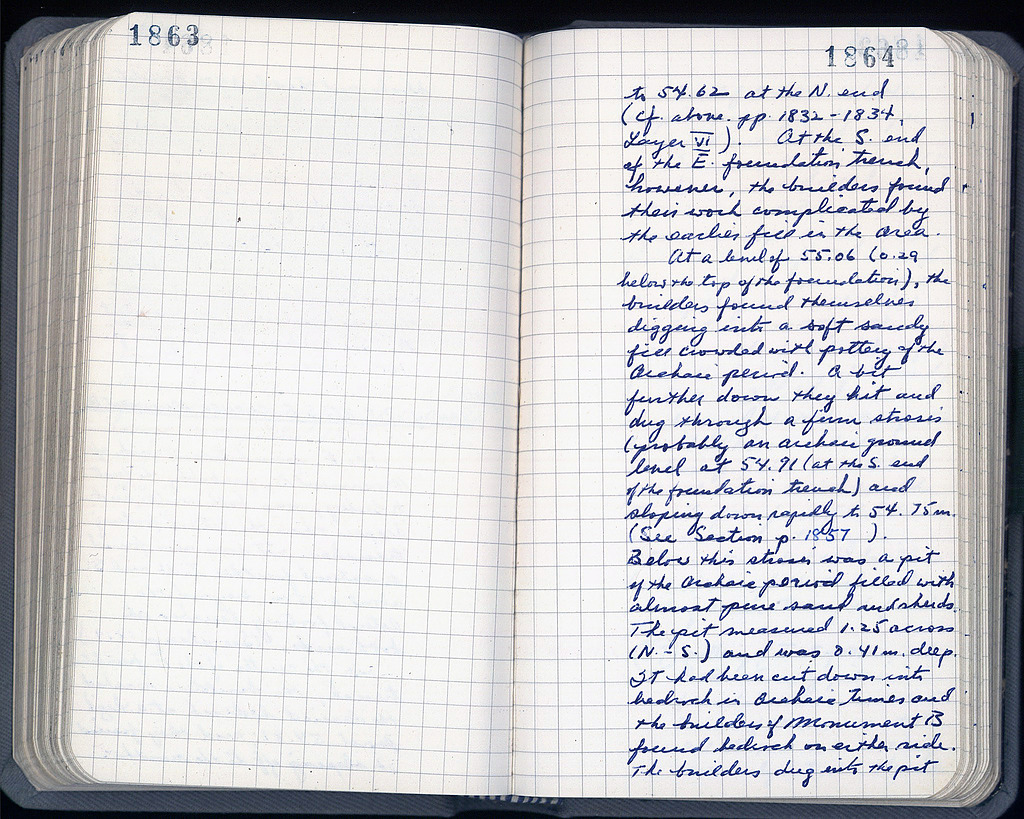 1863
1864
to 54.62 at the N. end
(cf. above. pp. 1832-1834,
Layer VI). At the S. end
of the E. foundation trench,
however, the builders found
their work complicated by
the earlier fill in the area.
At a level of 55.06 (0.29
below the top of the foundation), the
builders found themselves
digging into a soft sandy
fill crowded with pottery of the
Archaic period. A bit
further down they hit and
dug through a firm strosis
(probably an archaic ground
level at 54.91 (at the S. end
of the foundation trench) and
sloping down rapidly to 54.75m.
(See Section p. 1857 ).
Below this strosis was a pit
of the Archaic period filled with
almost pure sand and sherds.
The pit measured 1.25 across
(N.-S.) and was 0.41m. deep.
It had been cut down into
bedrock in Archaic times and
the builders of Monument B
found bedrock on either side.
The builders dug into the pit